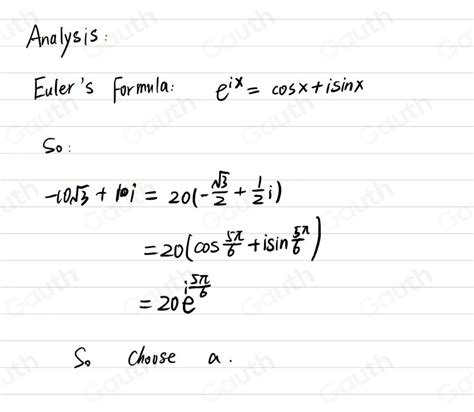 Analysis:
Euler's Formula: e^{ix} = cosx + isinx
So:
-10√3 + 10i = 20(-√3/2 + 1/2 i)
= 20(cos 5π/6 + isin 5π/6)
= 20e^{i 5π/6}
So choose a.